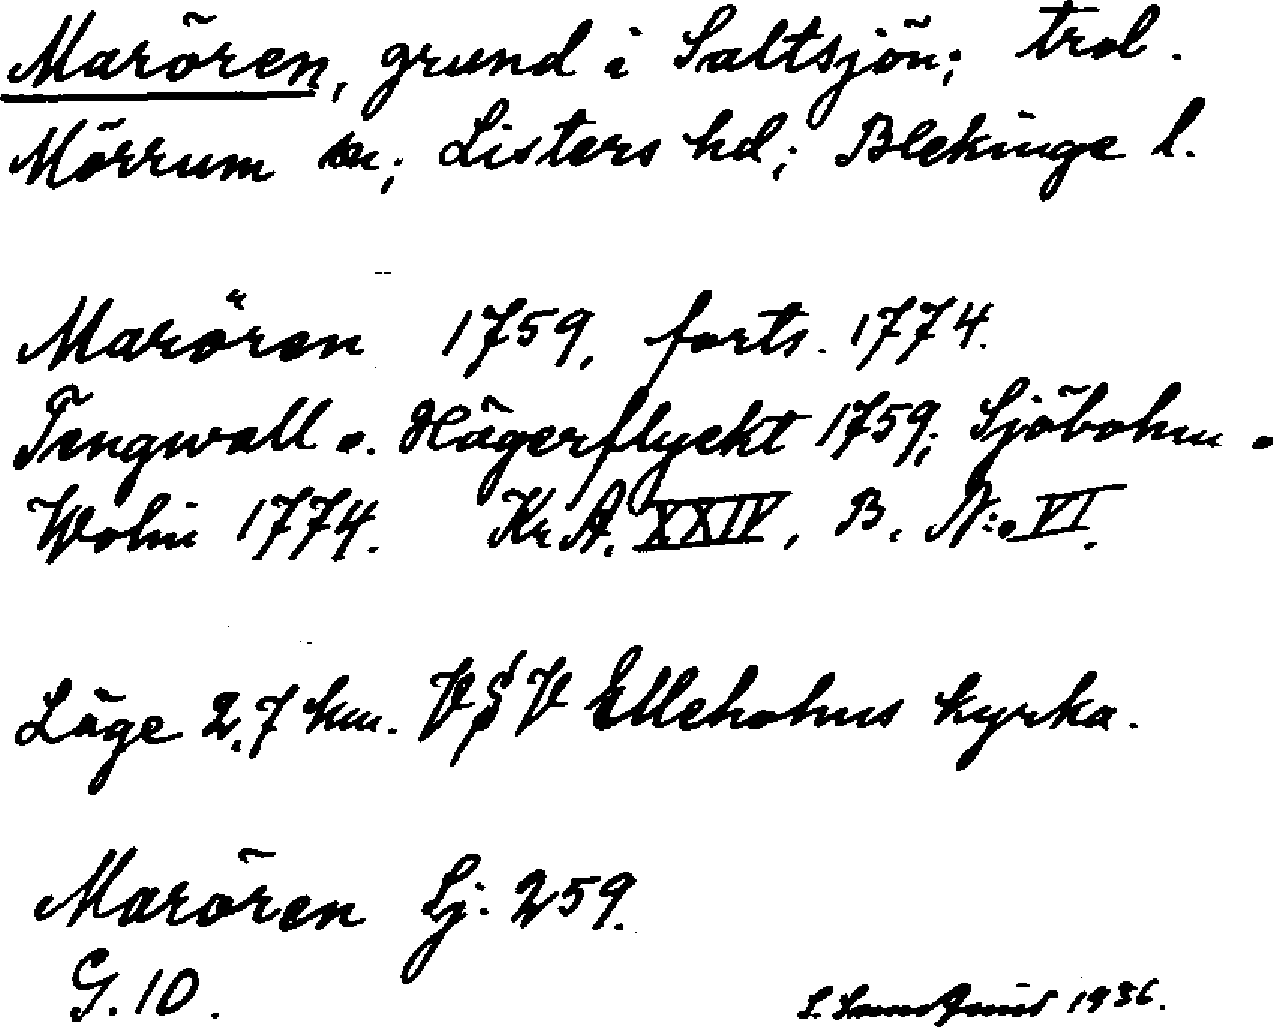 Marören, grund i Saltsjön; trol.
Mörrum sn; Listers hd; Blekinge l.
Marören 1759, forts. 1774.
Tengwall o. Hägerflyckt 1759; Sjöbohm o
Wolin 1774. Kr. A. XXIV, B. N:o VI.
Läge 2,7 km. VSV Elleholms kyrka.
Marören Sj. 259.
G. 10.
1936.